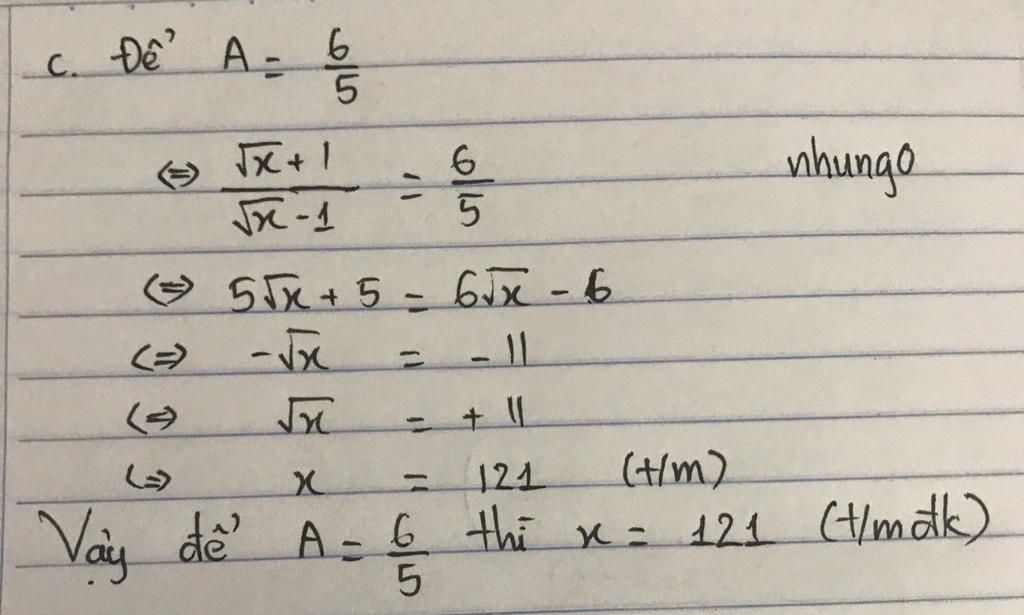 c. Để A = 6/5
<=> √x + 1 / √x - 1 = 6/5
nhungo
<=> 5√x + 5 = 6√x - 6
<=> -√x = - 11
<=> √x = + 11
<=> x = 121 (t/m)
Vậy để A = 6/5 thì x = 121 (t/m đk)